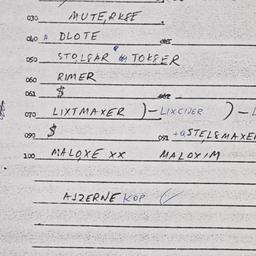 030 MUTERKEE
040 A DLOTE
050 STOLGAR TOKSER
060 RIMER
061 $
070 LIXTMAXER )-LIXCIJER )-L
090 $ 091 +aSTELSMAXE
100 MALOXE XX MALOXIM
AJZERNE KOP